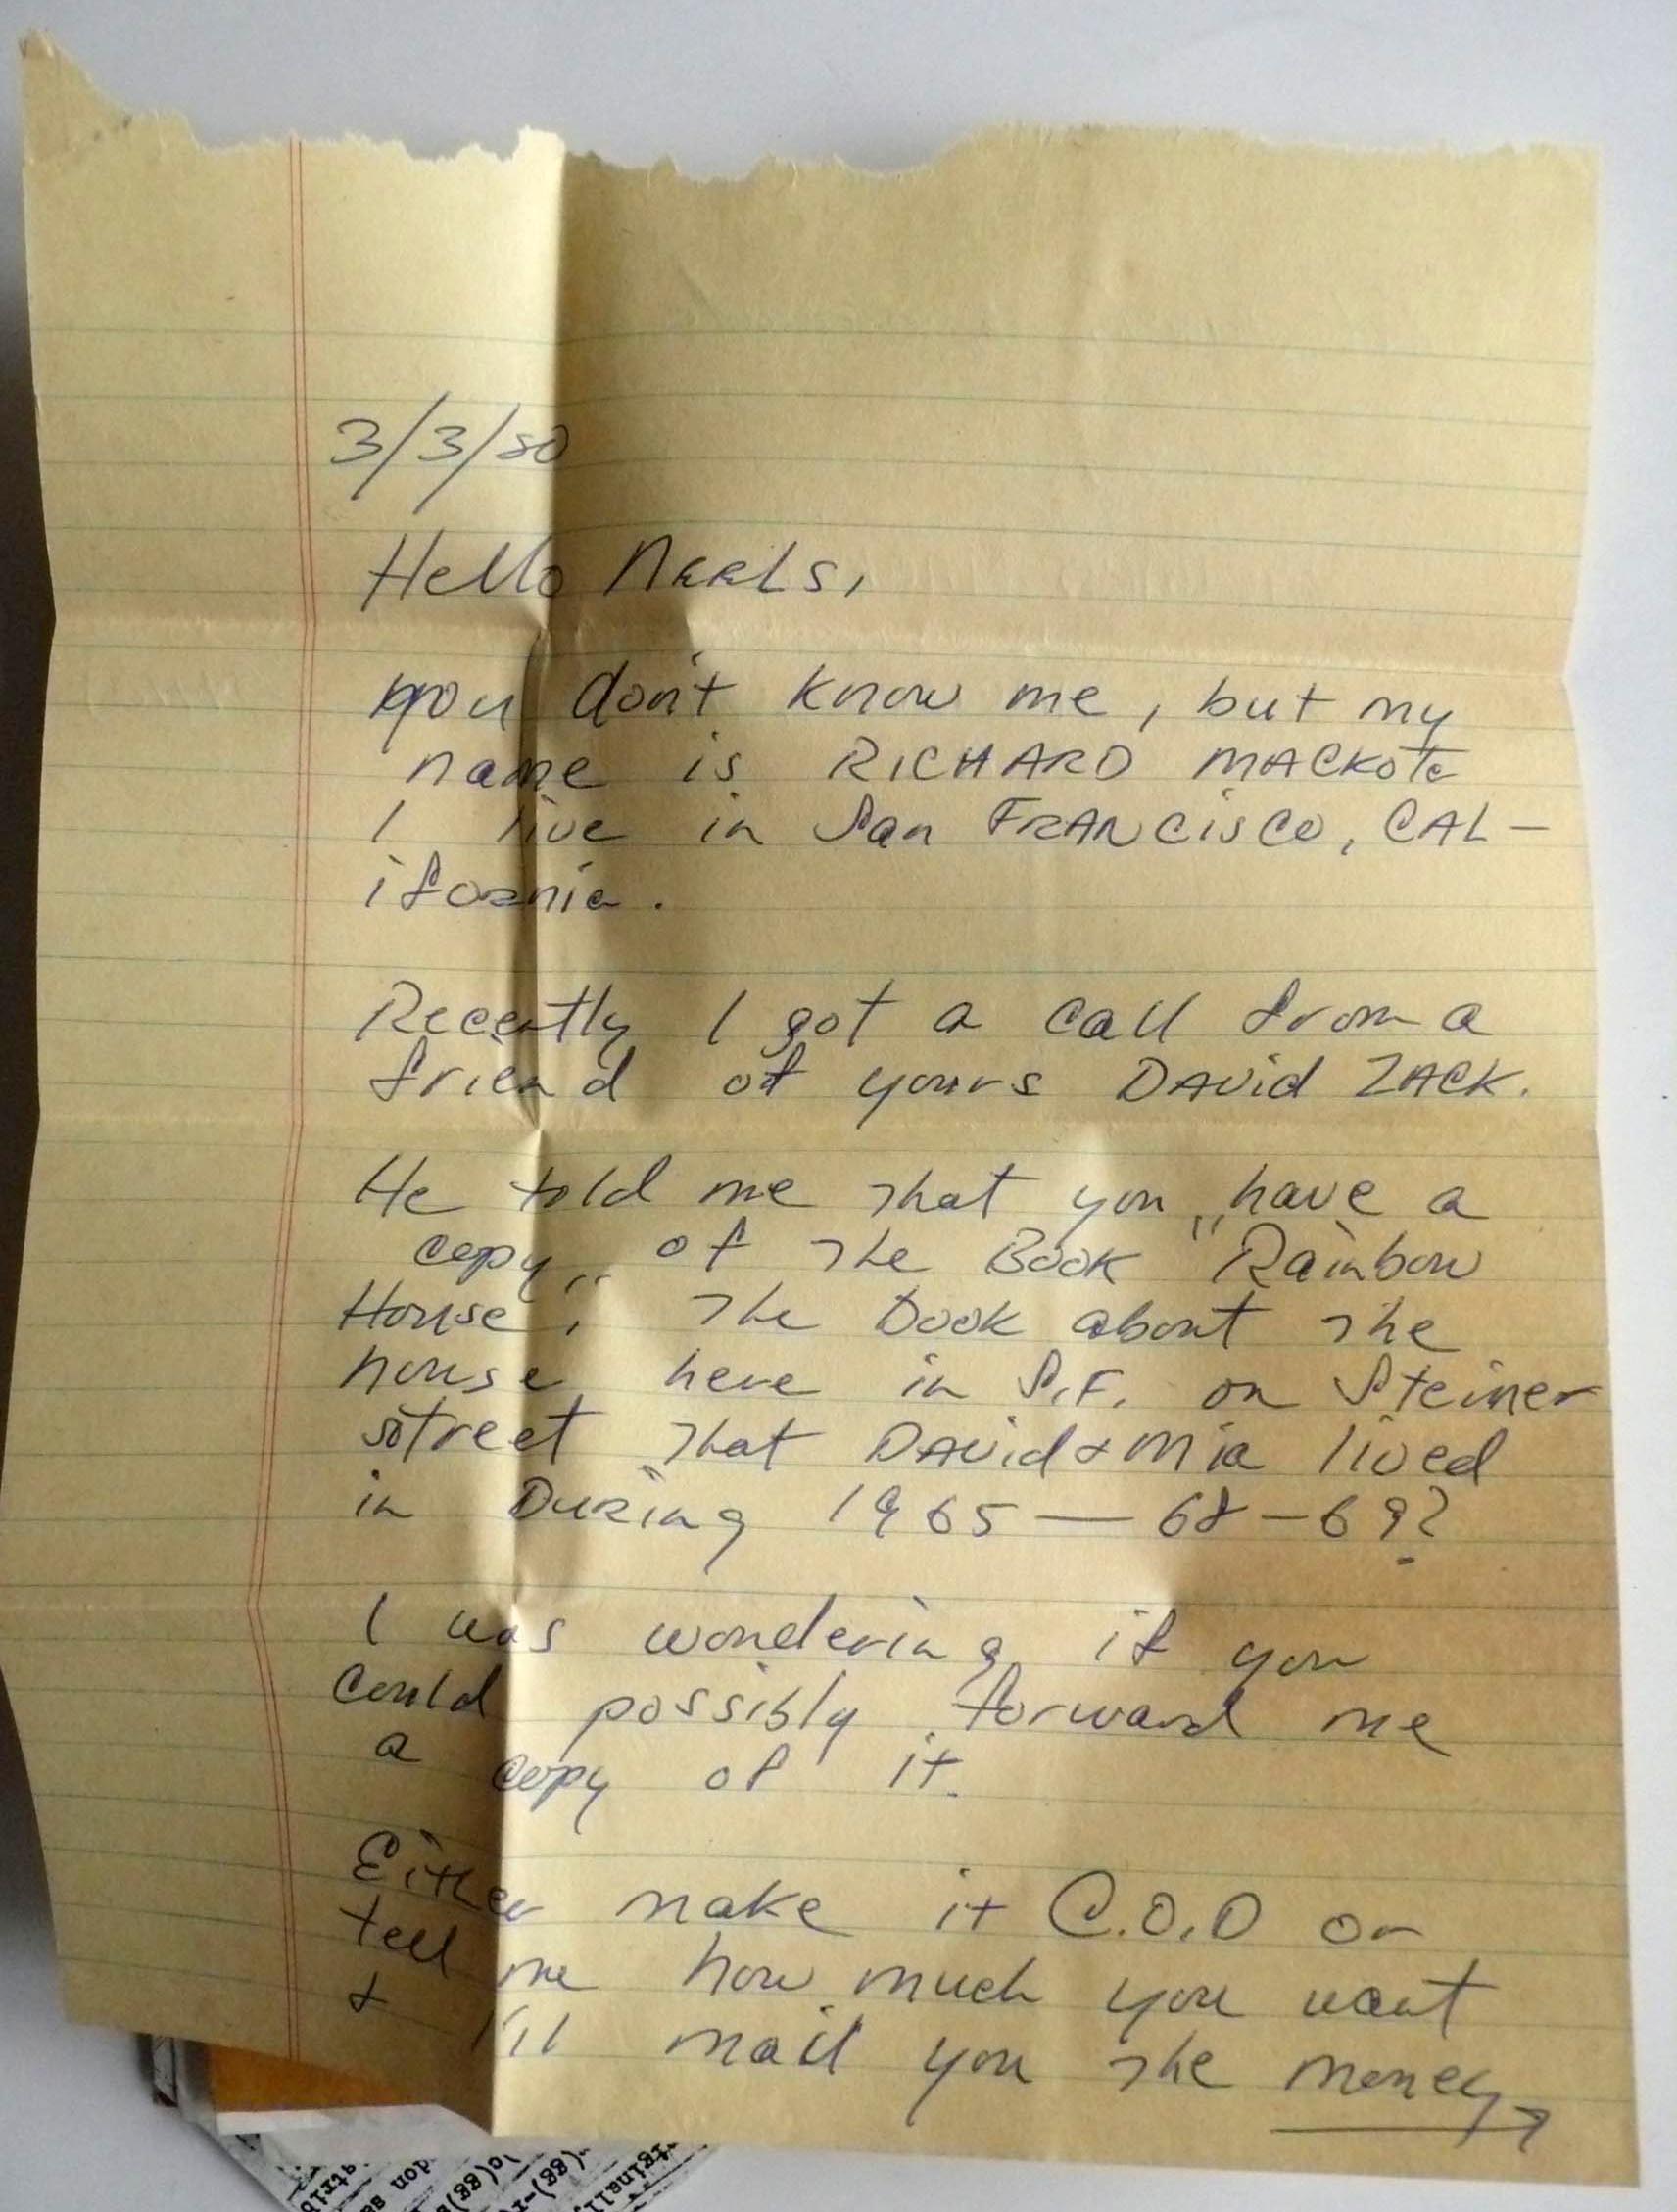 3/3/80
Hello Neels,
you don't know me, but my
name is RICHARD MACKOTE
I live in San FRANCISCO, CAL-
ifornia.
Recently I got a call from a
friend of yours DAVid ZACK.
He told me that you have a
copy of the Book "Rainbow
House", the book about the
house here in S.F. on Steiner
street that DAVid & Mia lived
in During 1965 — 68 – 69?
I was wondering if you
could possibly forward me
a copy of it.
Either make it C.O.D or
tell me how much you want
& I'll mail you the money →